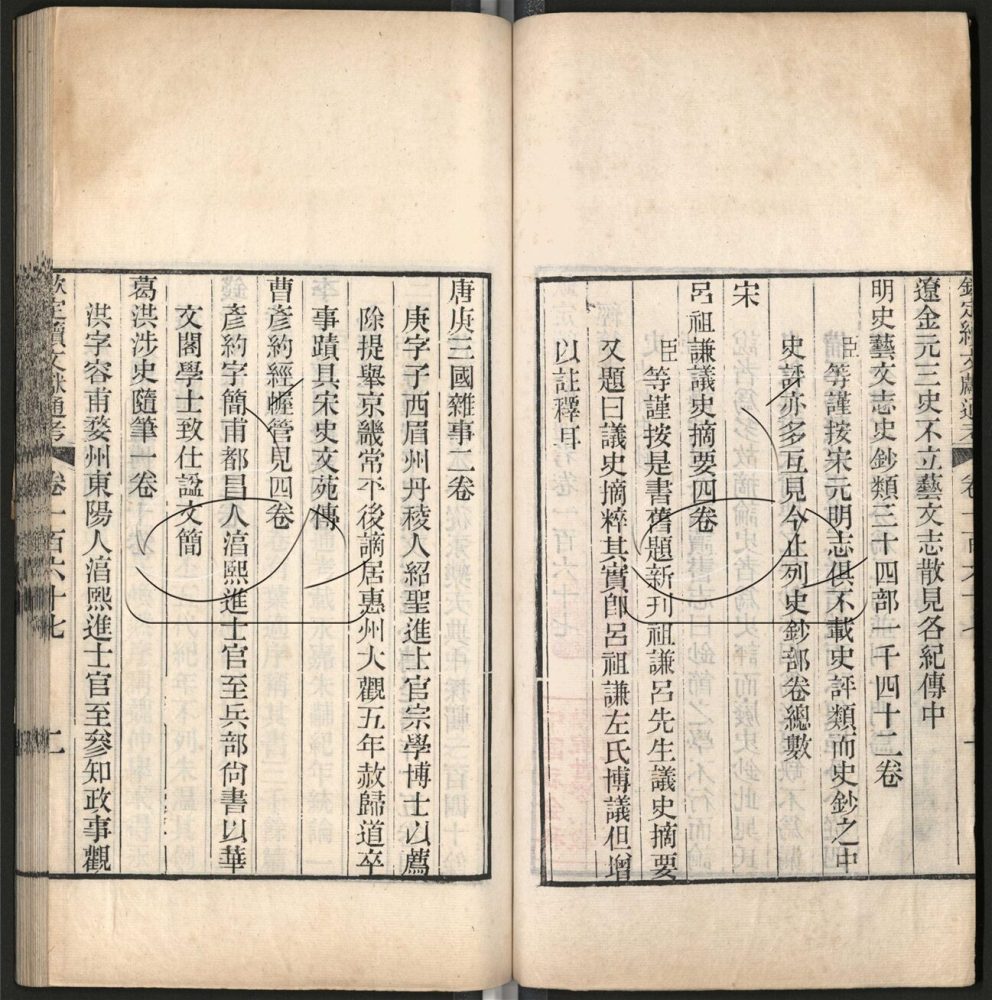 遼金元三史不立藝文志散見各紀傳中
明史藝文志史鈔類三十四部一千四十二卷
臣等謹按宋元明志俱不載史評類而史鈔之中
史評亦多互見今止列史鈔部卷總數
宋
呂祖謙議史摘要四卷
臣等謹按是書舊題新刊祖謙呂先生議史摘要
又題曰議史摘粹其實卽呂祖謙左氏博議但增
以註釋耳
唐庚三國雜事二卷
庚字子西眉州丹稜人紹聖進士官宗學博士以薦
除提舉京畿常平後謫居惠州大觀五年赦歸道卒
事蹟具宋史文苑傳
曹彥約經幄管見四卷
彥約字簡甫都昌人淳熙進士官至兵部尚書以華
文閣學士致仕諡文簡
葛洪涉史隨筆一卷
洪字容甫婺州東陽人淳熙進士官至參知政事觀
欽定續文獻通考 卷一百六十七 二